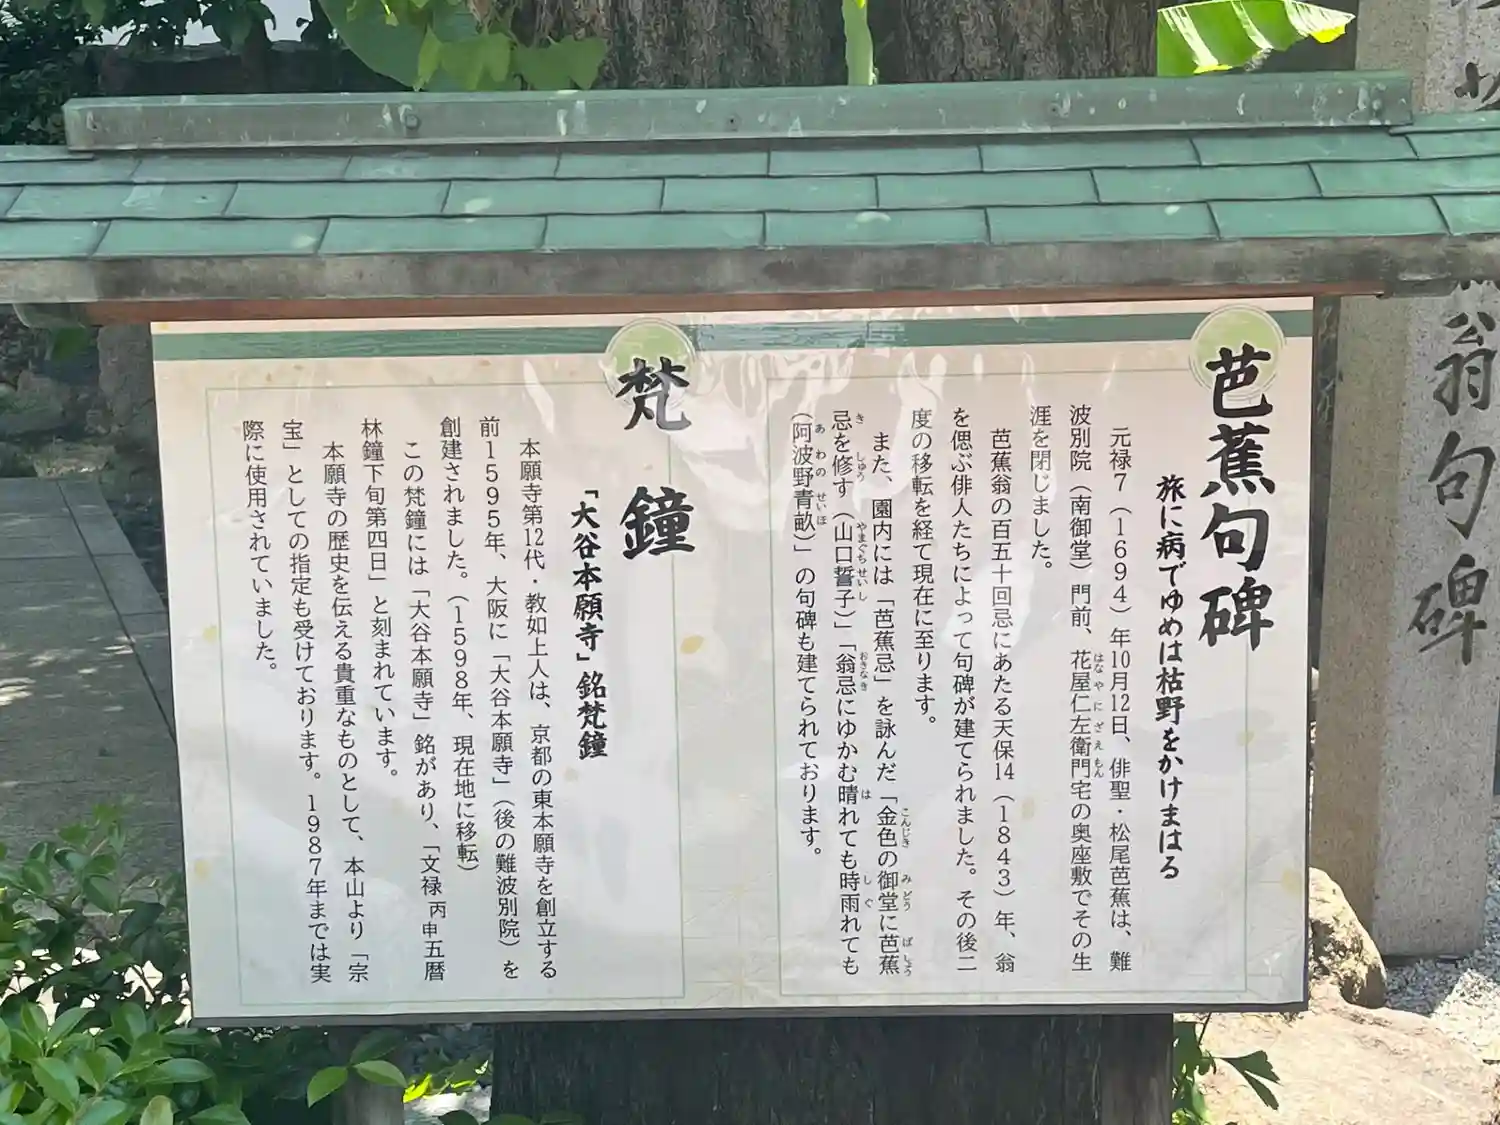 芭蕉句碑
旅に病でゆめは枯野をかけまはる
元禄7（1694）年10月12日、俳聖・松尾芭蕉は、難
波別院（南御堂）門前、花屋仁左衛門宅の奥座敷でその生
はなやにざえもん
涯を閉じました。
芭蕉翁の百五十回忌にあたる天保14（1843）年、翁
を偲ぶ俳人たちによって句碑が建てられました。その後二
度の移転を経て現在に至ります。
また、園内には「芭蕉忌」を詠んだ「金色の御堂に芭蕉
こんじき みどう ばしょう
忌を修す（山口誓子）」「翁忌にゆかむ晴れても時雨れても
き しゅう やまぐちせいし おきなき は しぐ
（阿波野青畝）」の句碑も建てられております。
あわの せいほ
梵鐘
「大谷本願寺」銘梵鐘
本願寺第12代・教如上人は、京都の東本願寺を創立する
前1595年、大阪に「大谷本願寺」（後の難波別院）を
創建されました。（1598年、現在地に移転）
この梵鐘には「大谷本願寺」銘があり、「文禄丙申五暦
林鐘下旬第四日」と刻まれています。
本願寺の歴史を伝える貴重なものとして、本山より「宗
宝」としての指定も受けております。1987年までは実
際に使用されていました。
翁句碑